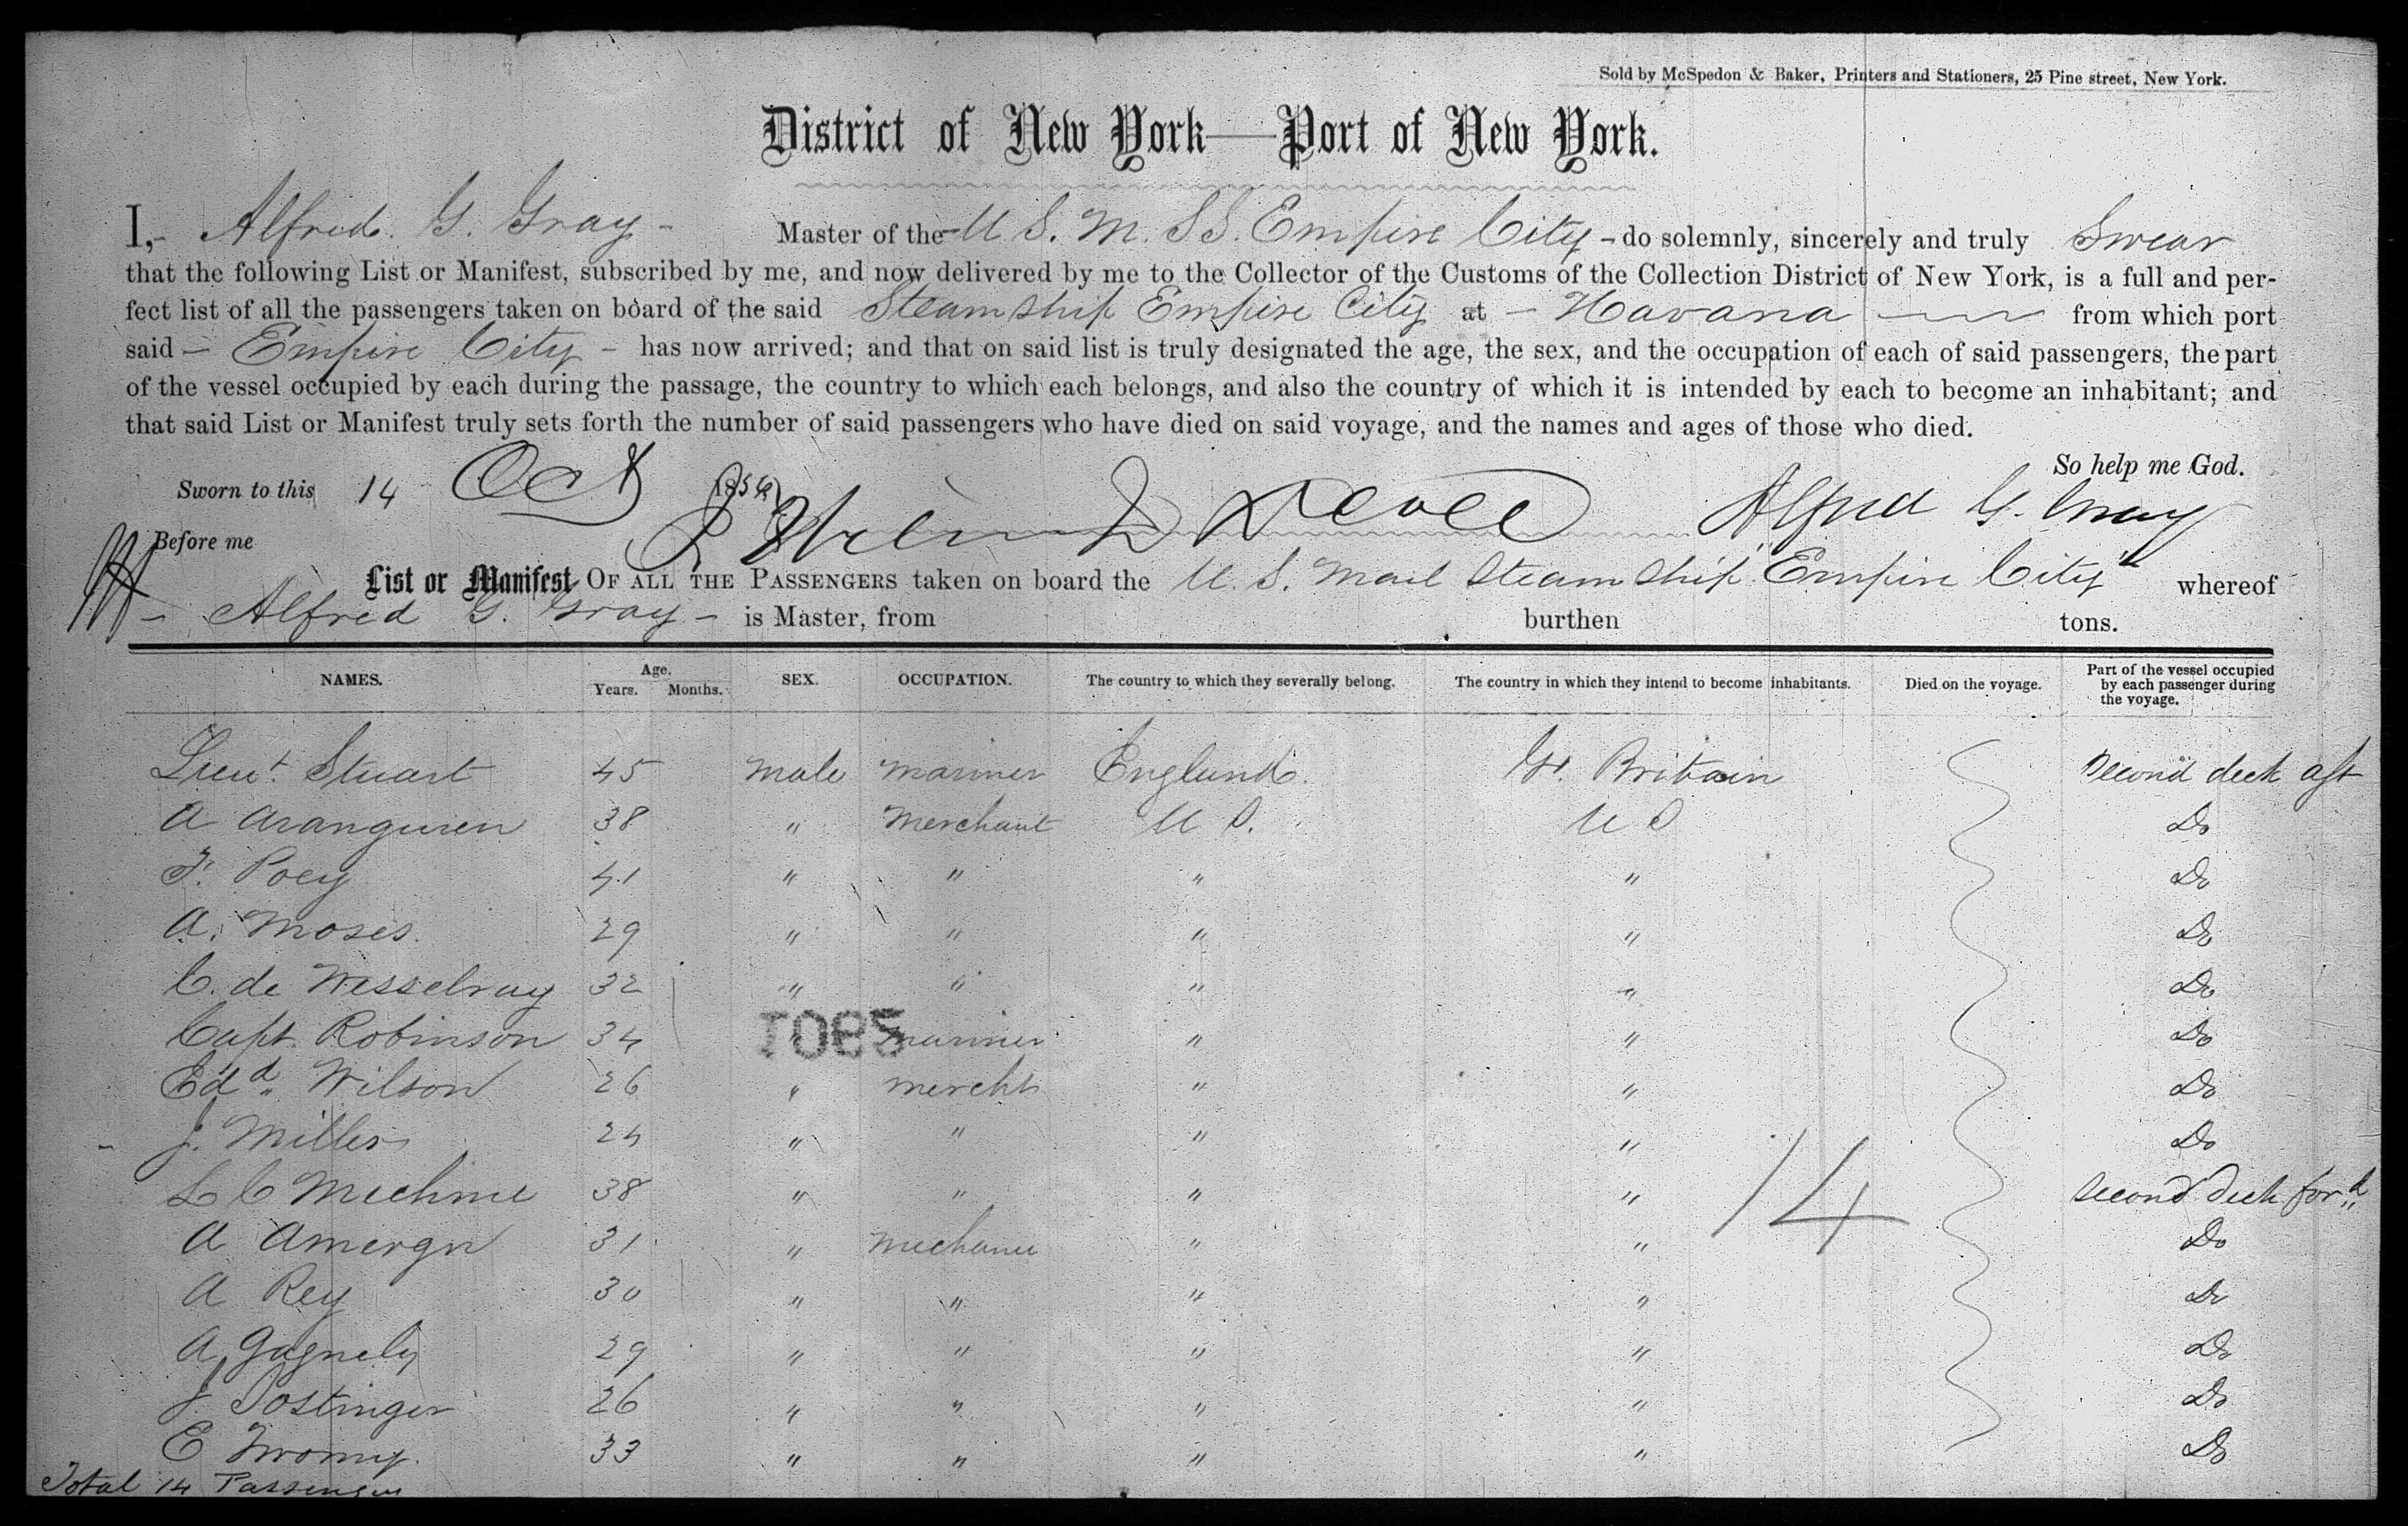 Sold by McSpedon & Baker, Printers and Stationers, 25 Pine street, New York.
District of New York—Port of New York.
I,- Alfred. G. Gray - Master of the - U S. M. SS. Empire City - do solemnly, sincerely and truly Swear
that the following List or Manifest, subscribed by me, and now delivered by me to the Collector of the Customs of the Collection District of New York, is a full and per-
fect list of all the passengers taken on board of the said Steam Ship Empire City at - Havana from which port
said - Empire City - has now arrived; and that on said list is truly designated the age, the sex, and the occupation of each of said passengers, the part
of the vessel occupied by each during the passage, the country to which each belongs, and also the country of which it is intended by each to become an inhabitant; and
that said List or Manifest truly sets forth the number of said passengers who have died on said voyage, and the names and ages of those who died.
So help me God.
Sworn to this 14 Oct Alfred G. Gray
Before me
List or Manifest OF ALL THE PASSENGERS taken on board the U. S. Mail Steam Ship "Empire City" whereof
- Alfred G. Gray - is Master, from burthen tons.
NAMES. Age. Years. Months. SEX. OCCUPATION. The country to which they severally belong. The country in which they intend to become inhabitants. Died on the voyage. Part of the vessel occupied by each passenger during the voyage.
Lieut. Stuart 45 Male Mariner England. Gt. Britain Second deck aft
A Aranguren 38 " Merchant U S. U S Do
F. Poey 41 " " " " Do
A. Moses. 29 " " " " Do
C. de 32 " " " " Do
Capt. Robinson 34 " mariner " " Do
Edd. Wilson 26 " mercht " " Do
J. Miller 24 " " " " Do
L C 38 " " " " Second deck ford
A 31 " Mechanic " " Do
A Rey 30 " " " " Do
A 29 " " " " Do
J Postinger 26 " " " " Do
E 33 " " " " Do
14
Total 14 Passengers